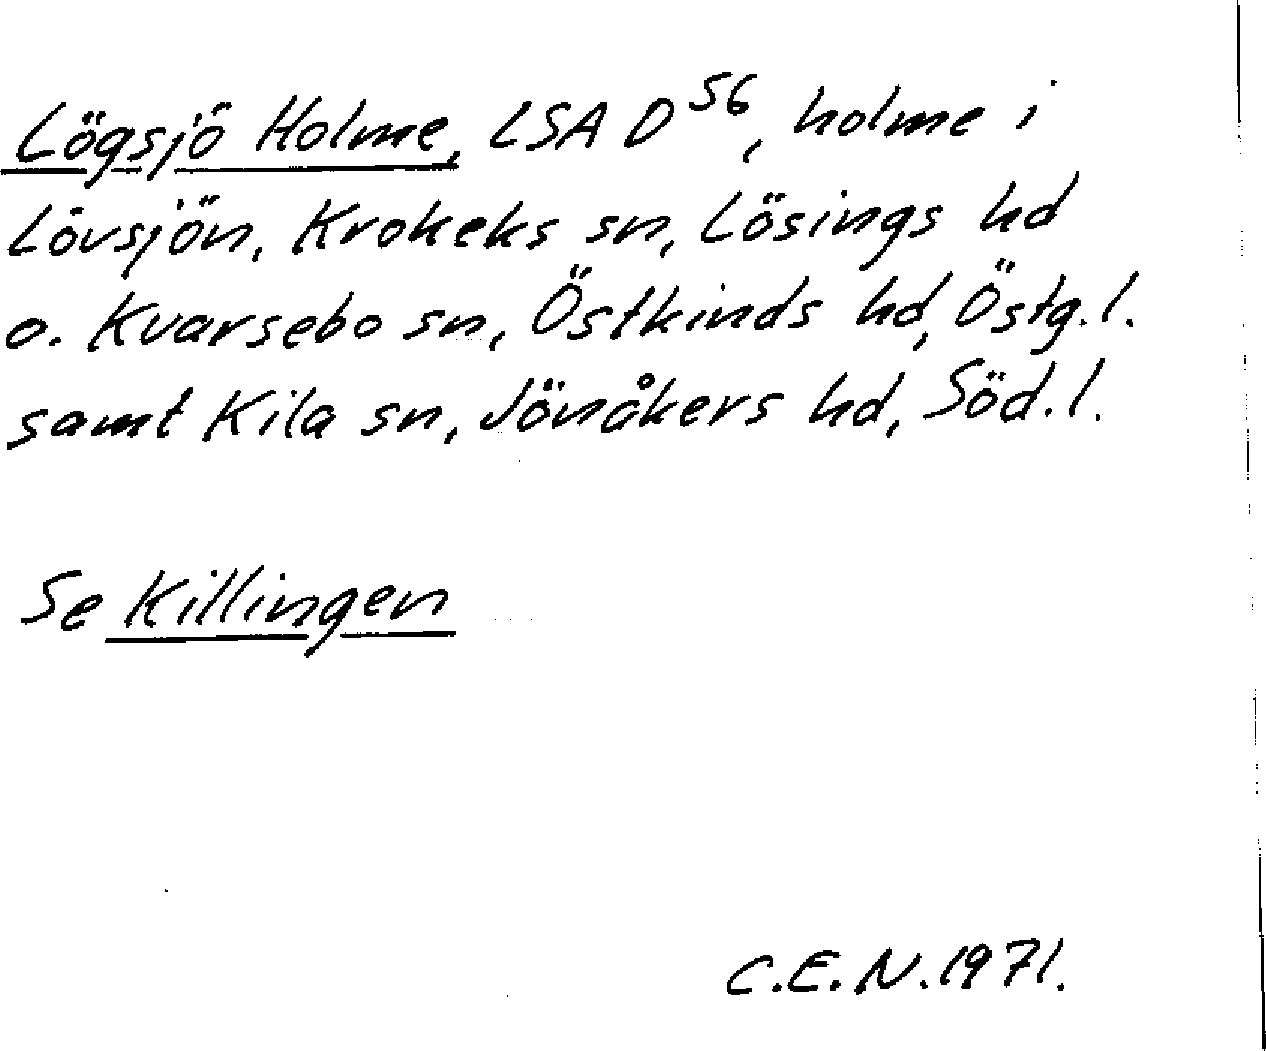 Lögsjö Holme, LSA D 56, holme i
Lövsjön, Krokeks sn, Lösings hd
o. Kvarsebo sn, Östkinds hd, Östg.l.
samt Kila sn, Jönåkers hd, Söd.l.
Se Killingen
C.E.N. 1971.